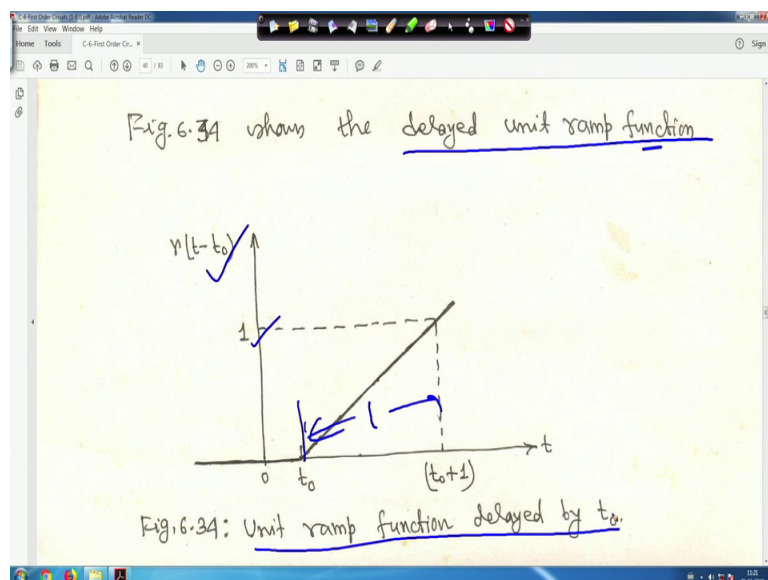 C-6-First Order Circuits (1-83).pdf - Adobe Acrobat Reader DC
File Edit View Window Help
Home Tools C-6-First Order Cir... ×
Sign
40 / 83
200%
Fig. 6.34 shows the delayed unit ramp function
r(t-t₀)
1
1
0
t₀
(t₀+1)
t
Fig. 6.34: Unit ramp function delayed by t₀.
11:21